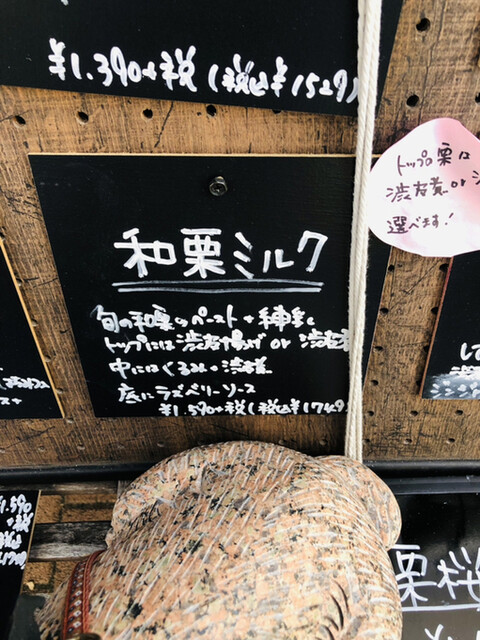 ¥1.390+税(税込¥1529)
トップの栗は
渋皮煮 or
選べます!
和栗ミルク
旬の和栗のペースト+練乳
トップには渋皮揚げ or 渋皮煮
中にはくるみ・渋皮煮
底にラズベリーソース
¥1.590+税(税込¥1749)
¥1.590
+税
栗桜